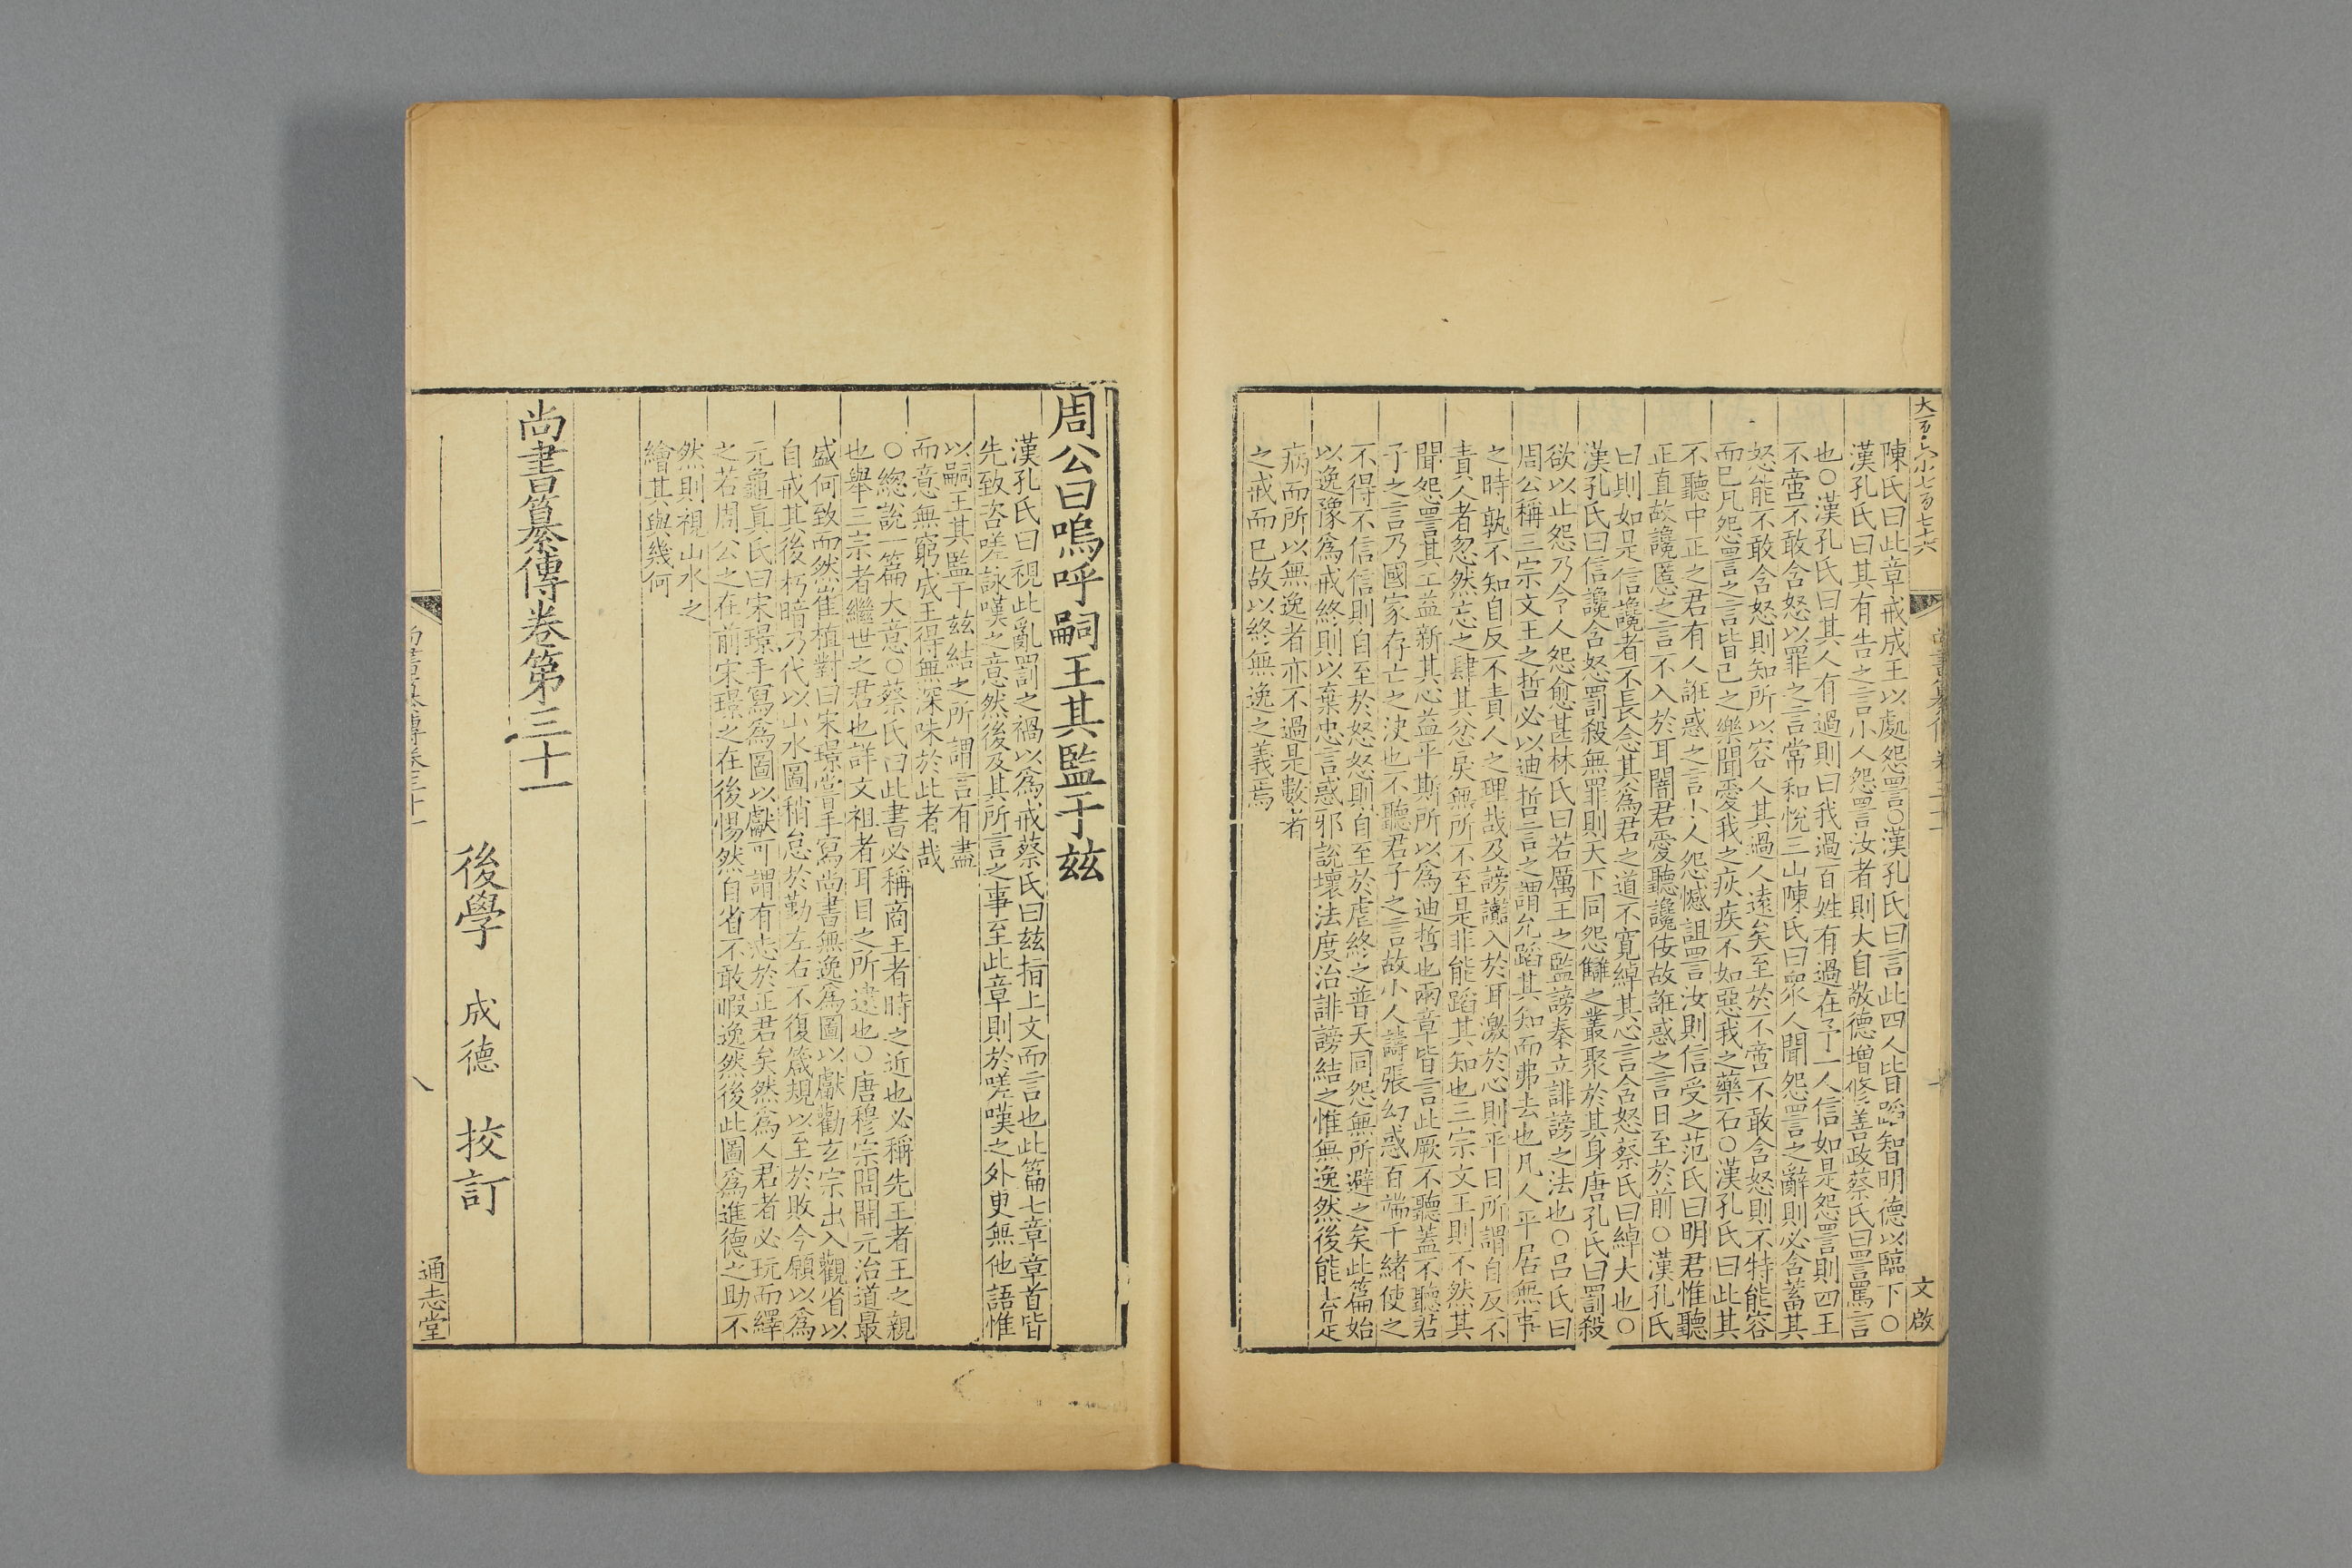 陳氏曰此章戒成王以處怨詈○漢孔氏曰言此四人皆蹈智明德以臨下○
漢孔氏曰其有告之言小人怨詈汝者則大自敬德增修善政蔡氏曰詈罵言
也○漢孔氏曰其人有過則曰我過百姓有過在予一人信如是怨詈則四王
不啻不敢含怒以罪之言常和悅三山陳氏曰眾人聞怨詈之辭則必含蓄其
怒能不敢含怒則知所以容人其過人遠矣至於不啻不敢含怒則不特能容
而已凡怨詈之言皆己之樂聞愛我之疢疾不如惡我之藥石○漢孔氏曰此其
不聽中正之君有人誑惑之言小人怨憾詛詈汝則信受之范氏曰明君惟聽
正直故讒慝之言不入於耳闇君愛聽讒佞故誑惑之言日至於前○漢孔氏
曰則如是信讒者不長念其爲君之道不寬綽其心言含怒蔡氏曰綽大也○
漢孔氏曰信讒含怒罰殺無罪則天下同怨讎之叢聚於其身唐孔氏曰罰殺
欲以止怨乃令人怨愈甚林氏曰若厲王之監謗秦立誹謗之法也○呂氏曰
周公稱三宗文王之哲必以迪哲言之謂允蹈其知而弗去也凡人平居無事
之時孰不知自反不責人之理哉及謗讟入於耳激於心則平日所謂自反不
責人者忽然忘之肆其忿戾無所不至是非能蹈其知也三宗文王則不然其
聞怨詈其工益新其心益平斯所以爲迪哲也兩章皆言此厥不聽蓋不聽君
子之言乃國家存亡之決也不聽君子之言故小人譸張幻惑百端千緒使之
不得不信信則自至於怒怒則自至於虐終之普天同怨無所避之矣此篇始
以逸豫爲戒終則以棄忠言惑邪說壞法度治誹謗結之惟無逸然後能去是
病而所以無逸者亦不過是數者
之戒而已故以終無逸之義焉
文啟
周公曰嗚呼嗣王其監于茲
漢孔氏曰視此亂罰之禍以爲戒蔡氏曰茲指上文而言也此篇七章章首皆
先致咨嗟詠嘆之意然後及其所言之事至此章則於嗟嘆之外更無他語惟
以嗣王其監于茲結之所謂言有盡
而意無窮成王得無深味於此者哉
○總說一篇大意○蔡氏曰此書必稱商王者時之近也必稱先王者王之親
也舉三宗者繼世之君也詳文祖者耳目之所逮也○唐穆宗問開元治道最
盛何致而然崔植對曰宋璟嘗手寫尚書無逸爲圖以獻勸玄宗出入觀省以
自戒其後朽暗乃代以山水圖稍怠於勤左右不復箴規以至於敗今願以爲
元龜眞氏曰宋璟手寫爲圖以獻可謂有志於正君矣然爲人君者必玩而繹
之若周公之在前宋璟之在後惕然自省不敢暇逸然後此圖爲進德之助不
然則視山水之
繪其與幾何
尚書纂傳卷第三十一
後學 成德 挍訂
通志堂